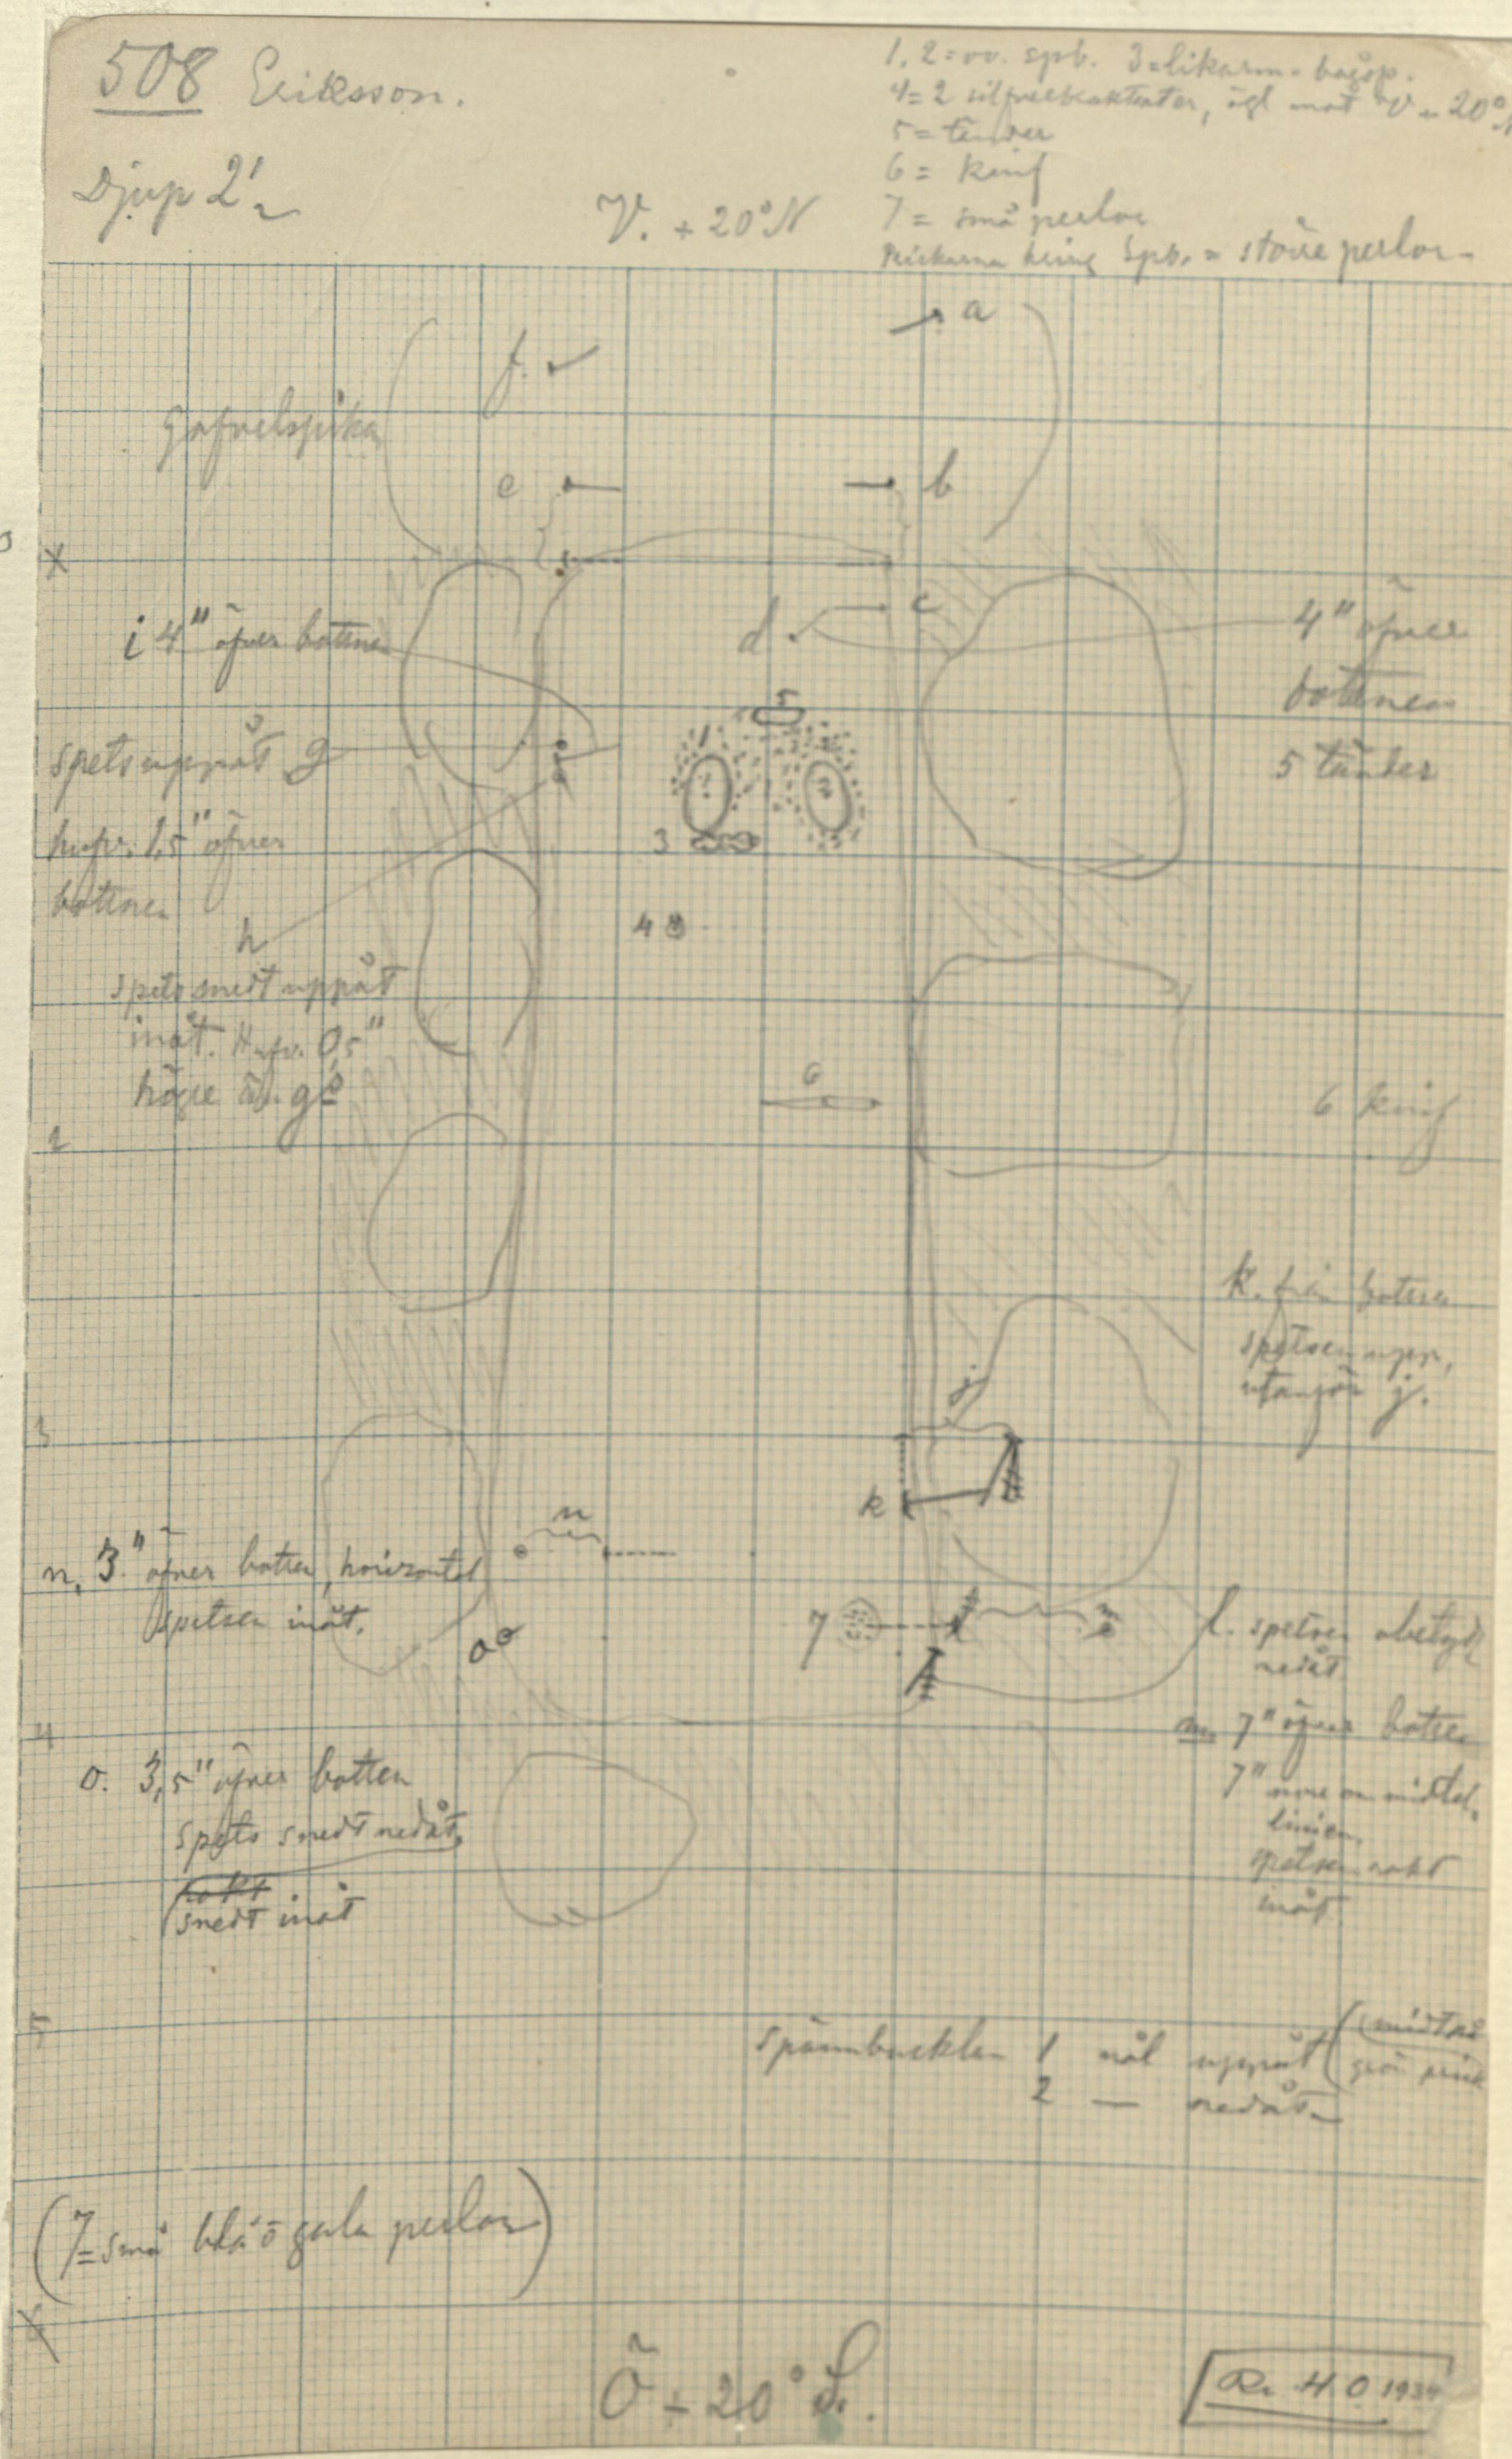 508 Eriksson.
Djup 2'
V. + 20° N
1, 2 = ov. spb. 3 = likarm. bågsp.
4 = 2 silfverbrakteater, ögl mot V + 20° N
5 = tänder
6 = knif
7 = små perlor
Prickarna kring Spb. = större perlor
a
f.
Gafvelspikar
e
b
X
c
d
i 4" öfver bottnen
4" öfver
bottnen
5
5 tänder
1
2
spets uppåt g
3
hufv. 1,5" öfver
bottnen
4
h
spets snedt uppåt
inåt. Hufv. 0,5"
högre än g's
6
6 knif
2
k. från botten
spetsen upp,
utanför j.
j
3
k
n
n, 3" öfver botten, horizontel
spetsen inåt.
o
7
l
m
l. spetsen obetydl
nedåt
4
m. 7" öfver botten
7" norr om midtel-
linien,
spetsen rakt
inåt
o. 3,5" öfver botten
spets snedt nedåt,
rakt
snedt inåt
5
spännbucklan 1 nål uppåt
2 — nedåt
(7 = små blå o gula perlor)
6
Ö - 20° S.
R. H. O 1934